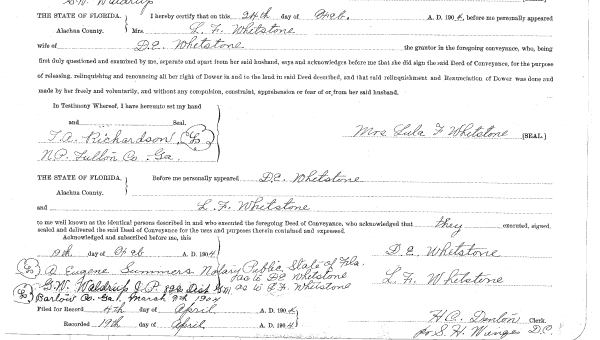 G.W. Waldrup
THE STATE OF FLORIDA. } I hereby certify that on this 24th day of Feb. A. D. 1904, before me personally appeared
Alachua County. Mrs. L. F. Whetstone
wife of D.E. Whetstone the grantor in the foregoing conveyance, who, being
first duly questioned and examined by me, separate and apart from her said husband, says and acknowledges before me that she did sign the said Deed of Conveyance, for the purpose
of releasing, relinquishing and renouncing all her right of Dower in and to the land in said Deed described, and that said relinquishment and Renunciation of Dower was done and
made by her freely and voluntarily, and without any compulsion, constraint, apprehension or fear of or from her said husband.
In Testimony Whereof, I have hereunto set my hand
and Seal.
T.A. Richardson
N.P. Fulton Co. Ga.
Mrs Lula F Whetstone [SEAL.]
THE STATE OF FLORIDA, } Before me personally appeared D.E. Whetstone
Alachua County.
and L. F. Whetstone
to me well known as the identical persons described in and who executed the foregoing Deed of Conveyance, who acknowledged that they executed, signed,
sealed and delivered the said Deed of Conveyance for the uses and purposes therein contained and expressed.
Acknowledged and subscribed before me, this
day of Feb A. D. 1904 D.E. Whetstone
Eugene Summers Notary Public State of Fla.
as to D.E Whetstone
G.W. Waldrup J.P. 822 Dist G.M as to L.F. Whetstone L.F. Whetstone
Bartow Co. Ga. March 9th 1904
Filed for Record 4th day of April A. D. 1904 H.C. Denton Clerk.
Recorded 19th day of April, A. D. 1904 S.H. Wienges D.C.